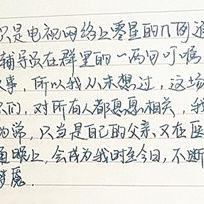 只是电视网络上零星的几例通
辅导员在群里的一两句叮嘱
事，所以我从未想过，这场
们，对所有人都息息相关，我
常，只当是自己的父亲，又在医
眼上，会成为我时至今日，不断
梦魇．